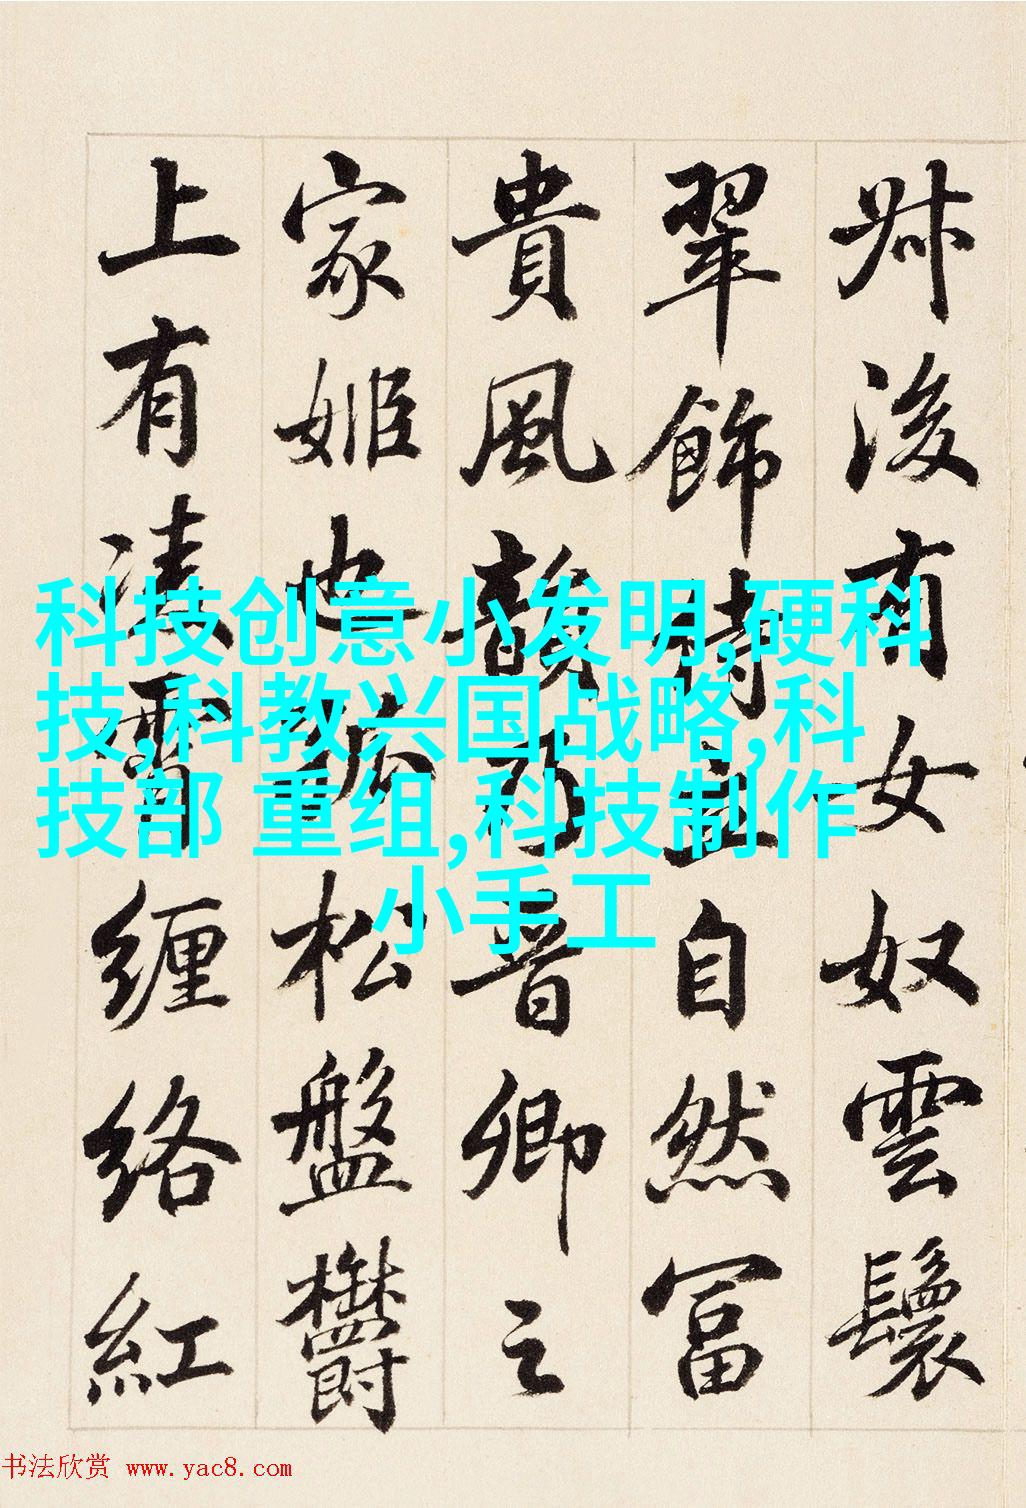 妝後有女奴雲鬟
翠飾特立自然富
貴風韻乃晋卿之
家姬也孤松盤欝
上有凌霄纏络紅
科技创意小发明,硬科
技,科教兴国战略,科
技部 重组,科技制作
小手工
书法欣赏 www.yac8.com